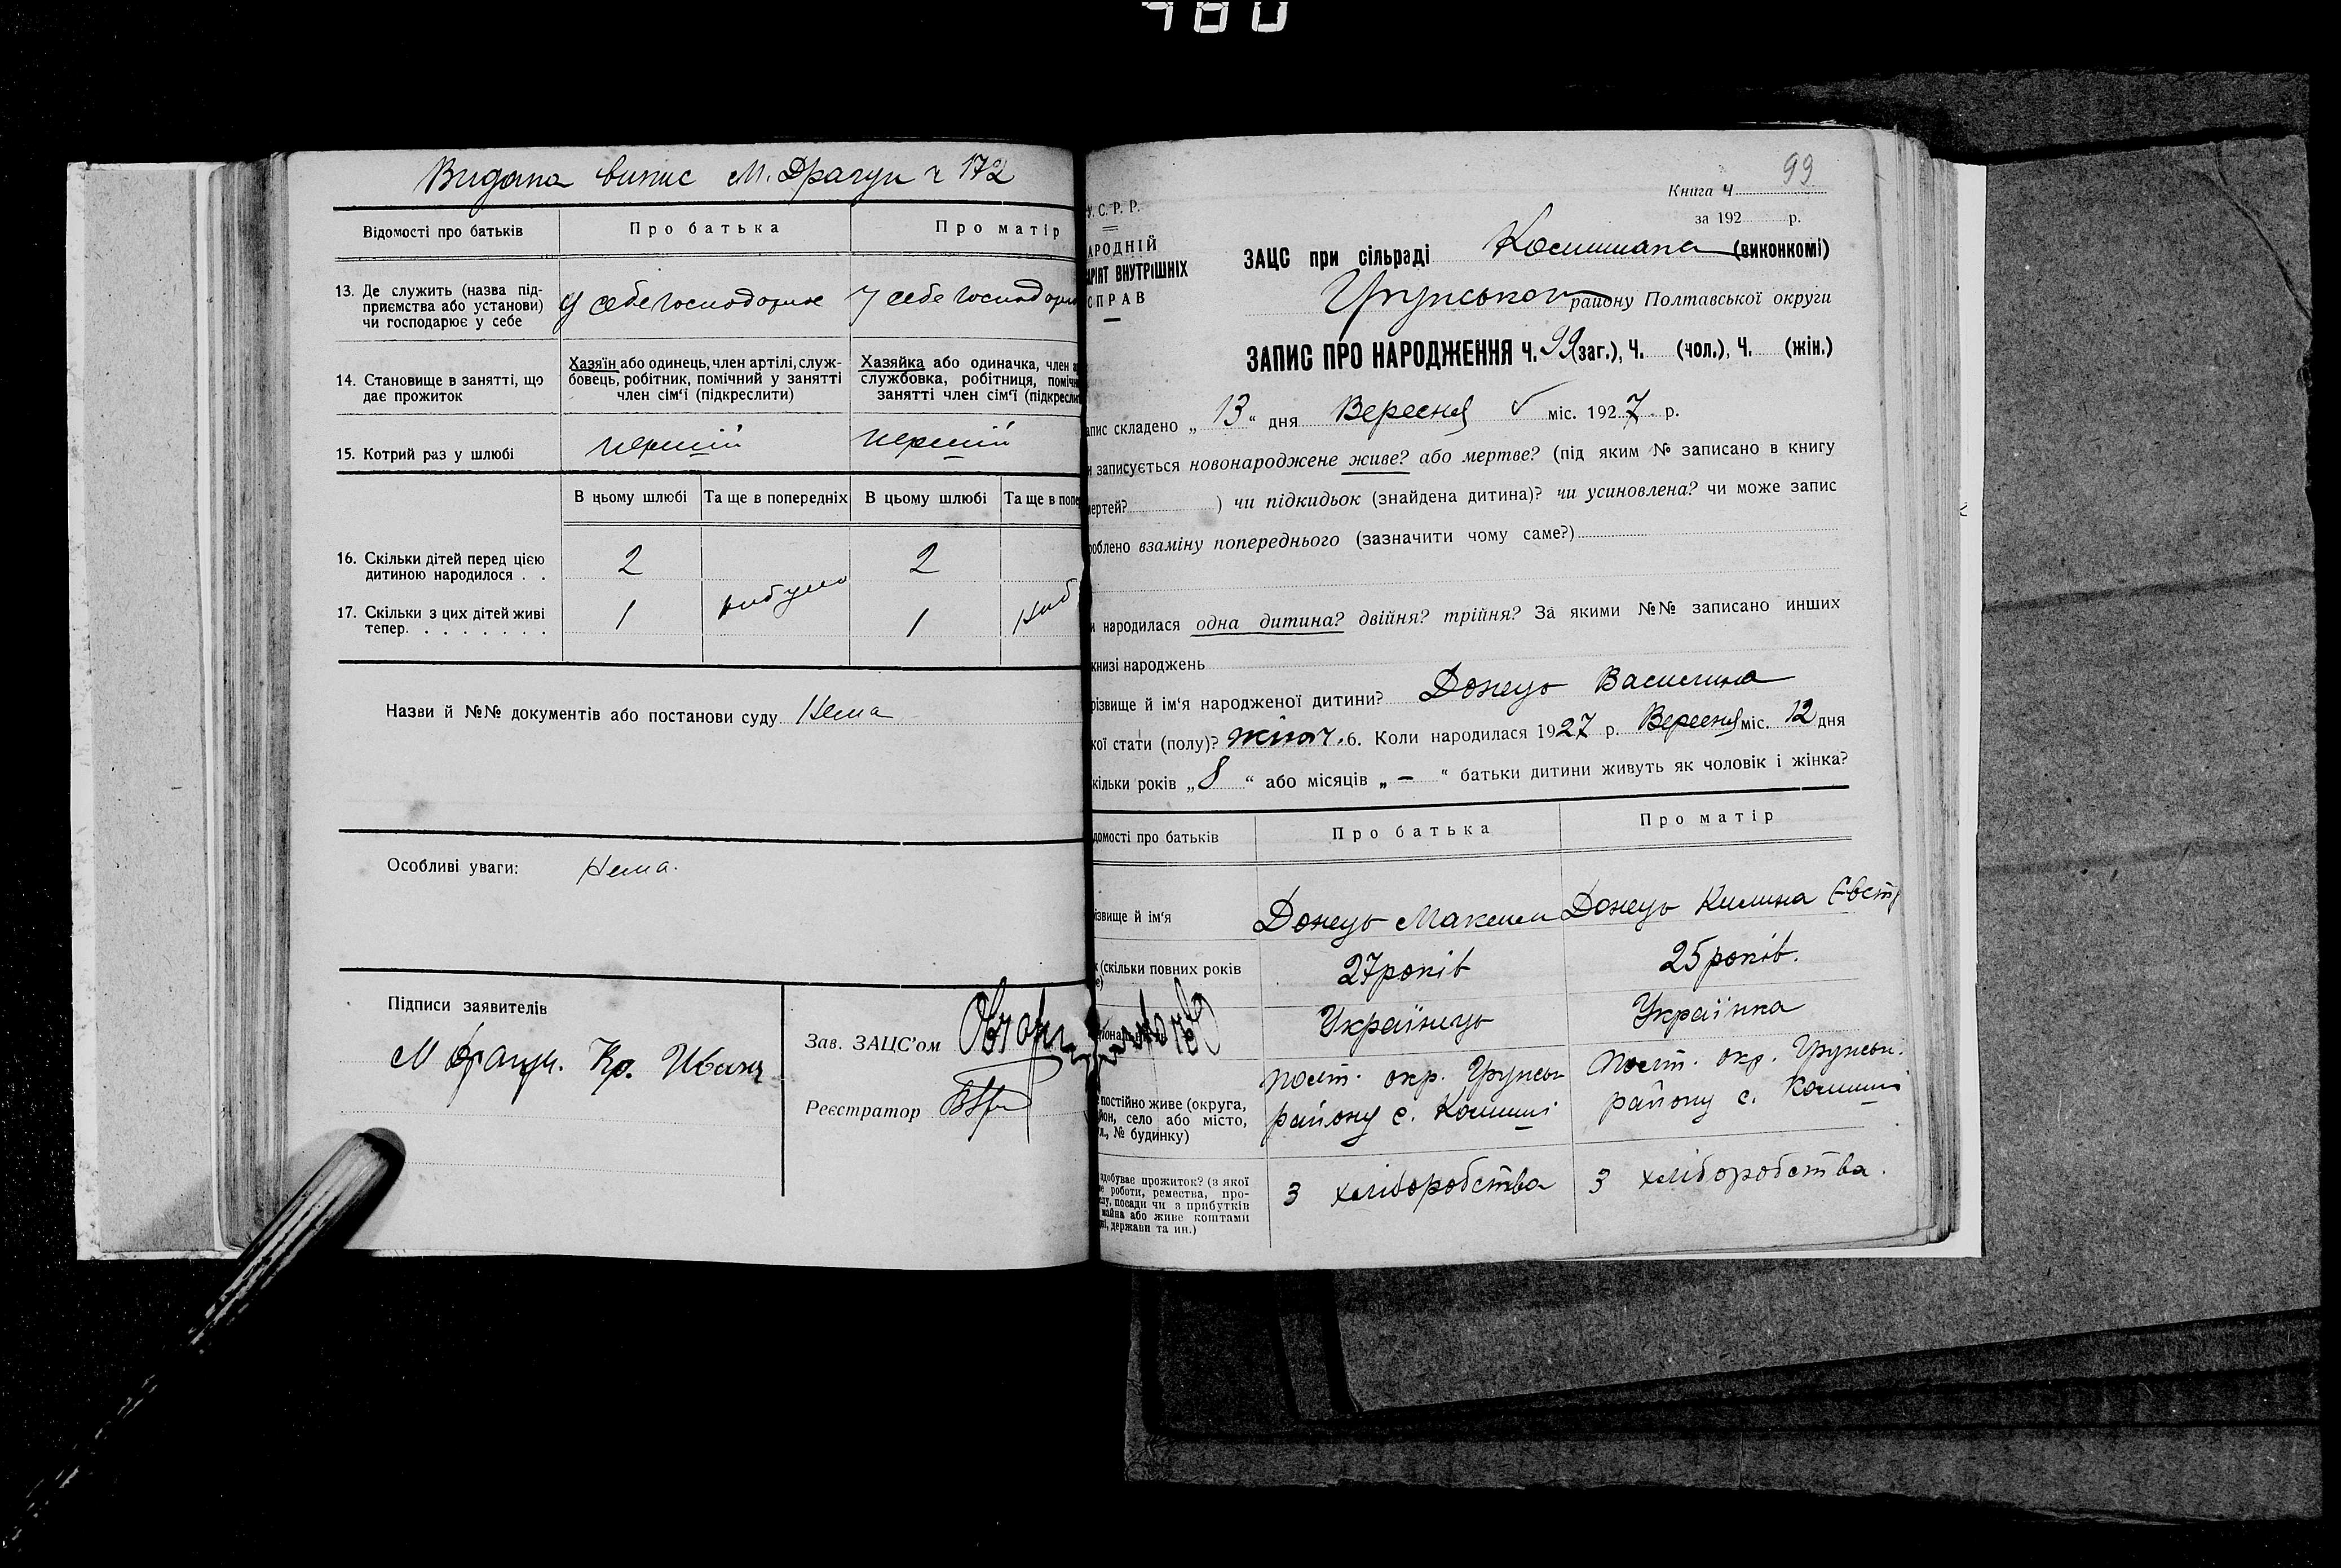 480
Видана випис М. Драгун ч 172
Відомості про батьків
Про батька
Про матір
13. Де служить (назва під-
приємства або установи)
чи господарює у себе
У себе господарює
У себе господарює
14. Становище в занятті, що
дає прожиток
Хазяїн або одинець, член артілі, служ-
бовець, робітник, помічний у занятті
член сім'ї (підкреслити)
Хазяйка або одиначка, член а
службовка, робітниця, помічн
занятті член сім'ї (підкресли
15. Котрий раз у шлюбі
перший
перший
В цьому шлюбі
Та ще в попередніх
В цьому шлюбі
Та ще в попе
16. Скільки дітей перед цією
дитиною народилося . .
2
2
17. Скільки з цих дітей живі
тепер. . . . . . . .
1
небуло
1
неб
Назви й №№ документів або постанови суду Нема
Особливі уваги: Нема.
Підписи заявителів
М Драгун. Кр. Иван
Зав. ЗАЦС'ом
Реєстратор
99
Книга Ч
за 192 р.
У. С. Р. Р.
АРОДНІЙ
АРІЯТ ВНУТРІШНІХ
СПРАВ
ЗАЦС при сільраді (виконкомі)
Грунського району Полтавської округи
ЗАПИС ПРО НАРОДЖЕННЯ Ч. 99 (заг.), Ч. (чол.), Ч. (жін.)
апис складено „ 13 “ дня Вересня міс. 1927 р.
и записується новонароджене живе? або мертве? (під яким № записано в книгу
мертей? ) чи підкидьок (знайдена дитина)? чи усиновлена? чи може запис
роблено взаміну попереднього (зазначити чому саме?)
и народилася одна дитина? двійня? трійня? За якими №№ записано инших
книзі народжень
різвище й ім'я народженої дитини? Донець Василина
кої стати (полу)? жіноч. 6. Коли народилася 1927 р. Вересня міс. 12 дня
кільки років „ 8 “ або місяців „ — “ батьки дитини живуть як чоловік і жінка?
домості про батьків
Про батька
Про матір
ізвище й ім'я
Донець Максим
Донець Килина Євст
к (скільки повних років
е)
27 років
25 років.
Українець
Українка
постійно живе (округа,
йон, село або місто,
л., № будинку)
Полт. окр. Грунськ
району с. Комиші
Полт. окр. Грунськ.
району с. Комиші
здобуває прожиток? (з якої
е роботи, ремества, про-
слу, посади чи з прибутків
майна або живе коштами
ні, держави та ин.)
З хліборобства
З хліборобства.